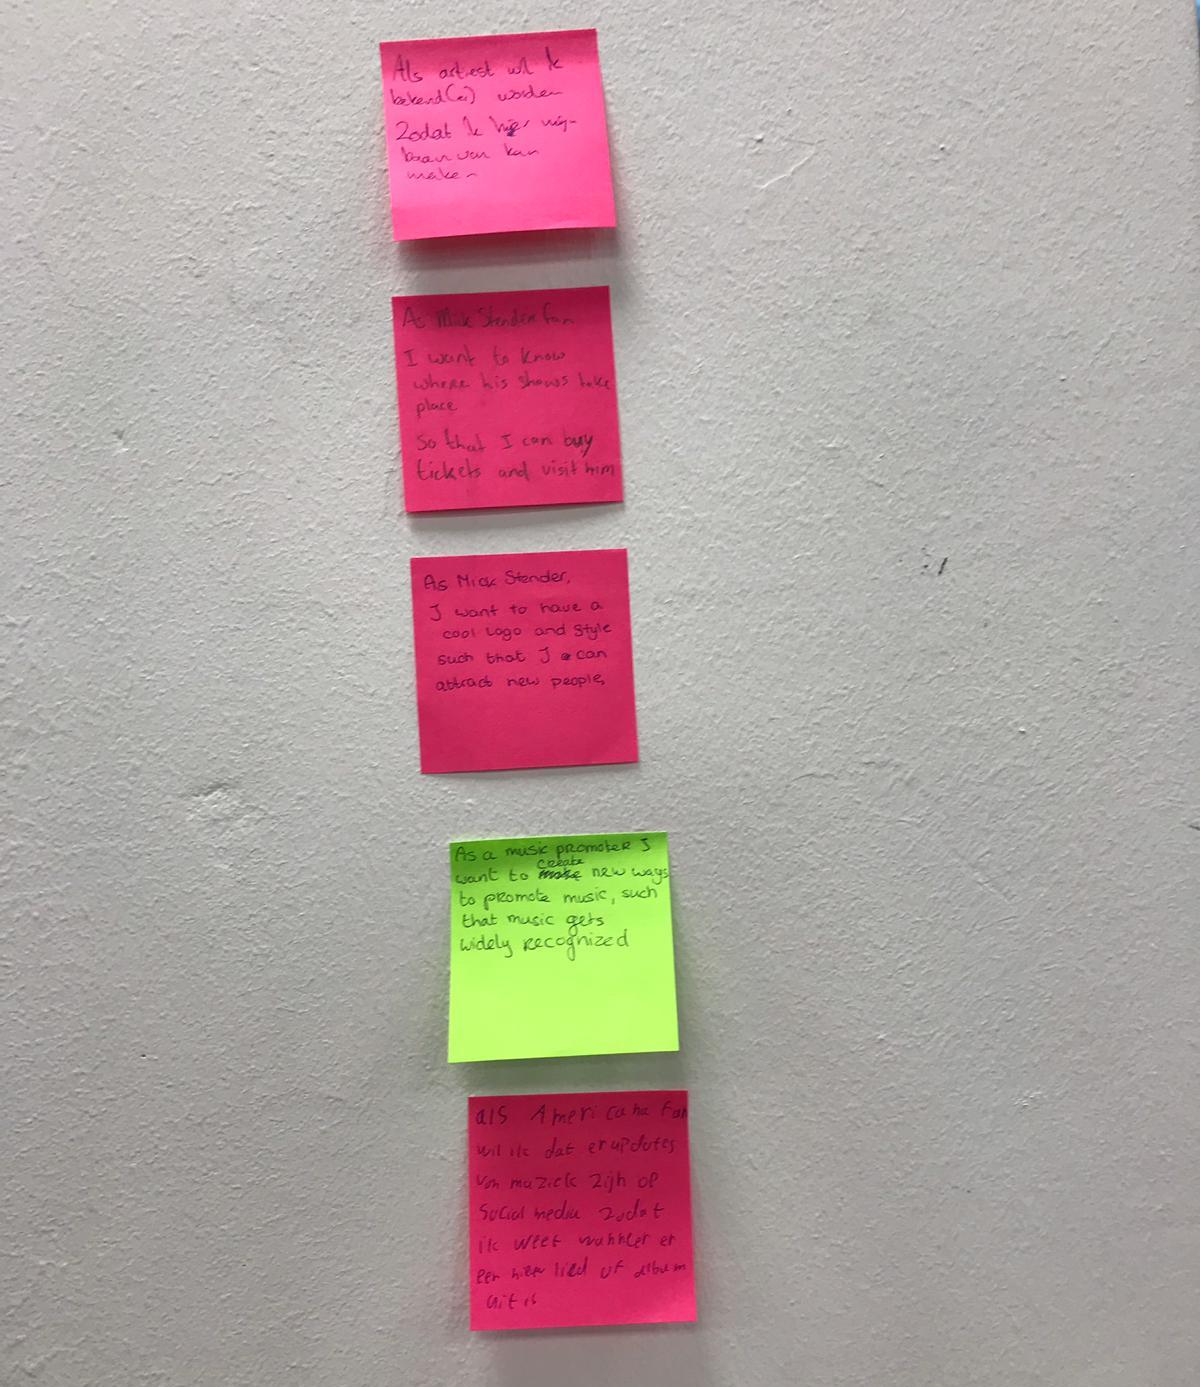 Als artiest wil ik
bekend(er) worden
Zodat ik hier mijn
baan van kan
maken
As Mick Stender fan
I want to know
where his shows take
place
So that I can buy
tickets and visit him
As Mick Stender,
I want to have a
cool logo and style
such that I can
attract new people,
As a music promoter I
want to create new ways
to promote music, such
that music gets
widely recognized
als Americana fan
wil ik dat er updates
van muziek zijn op
Social media zodat
ik weet wanneer er
een nieuw lied of album
uit is